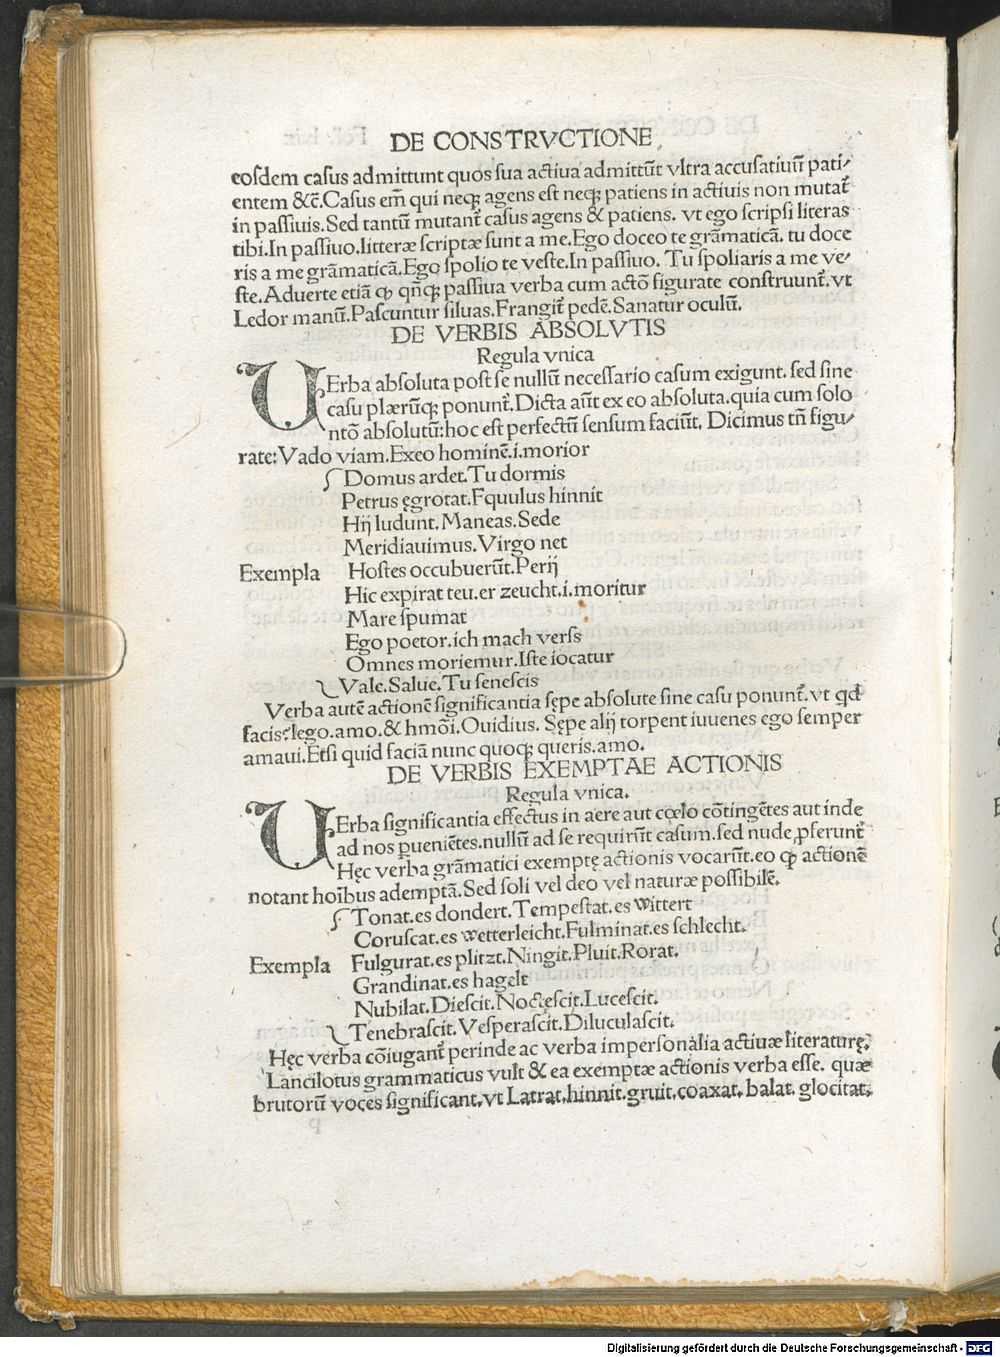 DE CONSTRVCTIONE
eosdem casus admittunt quos sua actiua admittũt vltra accusatiuũ pati⸗
entem &c̃. Casus em̃ qui neqꝫ agens est neqꝫ patiens in actiuis non mutat᷑
in passiuis. Sed tantũ mutant᷑ casus agens & patiens. vt ego scripsi literas
tibi. In passiuo. litteræ scriptæ sunt a me. Ego doceo te grãmaticã. tu doce
ris a me grãmaticã. Ego spolio te veste. In passiuo. Tu spoliaris a me ve⸗
ste. Aduerte etiã ꝙ qñqꝫ passiua verba cum actõ figurate construunt᷑. vt
Ledor manũ. Pascuntur siluas. Frangit᷑ pedẽ. Sanatur oculũ.
DE VERBIS ABSOLVTIS
Regula vnica
VErba absoluta post se nullũ necessario casum exigunt. sed sine
casu plærũqꝫ ponunt᷑. Dicta aũt ex eo absoluta. quia cum solo
ntõ absolutũ: hoc est perfectũ sensum faciũt. Dicimus tñ figu⸗
rate: Vado viam. Exeo hominẽ. i. morior
Domus ardet. Tu dormis
Petrus ęgrotat. Fquulus hinnit
Hij ludunt. Maneas. Sede
Meridiauimus. Virgo net
Exempla Hostes occubuerũt. Perij
Hic expirat teu. er zeucht. i. moritur
Mare spumat
Ego poetor. ich mach verss
Omnes moriemur. Iste iocatur
Vale. Salue. Tu senescis
Verba autẽ actionẽ significantia sępe absolute sine casu ponunt᷑. vt qd
facis? lego. amo. & hmõi. Ouidius. Sępe alij torpent iuuenes ego semper
amaui. Etsi quid faciã nunc quoqꝫ queris. amo.
DE VERBIS EXEMPTAE ACTIONIS
Regula vnica.
VErba significantia effectus in aere aut cœlo cõtingẽtes aut inde
ad nos ꝓueniẽtes. nullũ ad se requirũt casum. sed nude ꝓferunt᷑
Hęc verba grãmatici exemptę actionis vocarũt. eo ꝙ actionẽ
notant hoĩbus ademptã. Sed soli vel deo vel naturæ possibilẽ.
Tonat. es dondert. Tempestat. es wittert
Coruscat. es wetterleicht. Fulminat. es schlecht.
Exempla Fulgurat. es plitzt. Ningit. Pluit. Rorat.
Grandinat. es hagelt
Nubilat. Diescit. Noctescit. Lucescit.
Tenebrascit. Vesperascit. Diluculascit.
Hęc verba cõiugant᷑ perinde ac verba impersonalia actiuæ literaturę.
Lancilotus grammaticus vult & ea exemptæ actionis verba esse. quæ
brutorũ voces significant. vt Latrat. hinnit. gruit. coaxat. balat. glocitat.
Digitalisierung gefördert durch die Deutsche Forschungsgemeinschaft - DFG